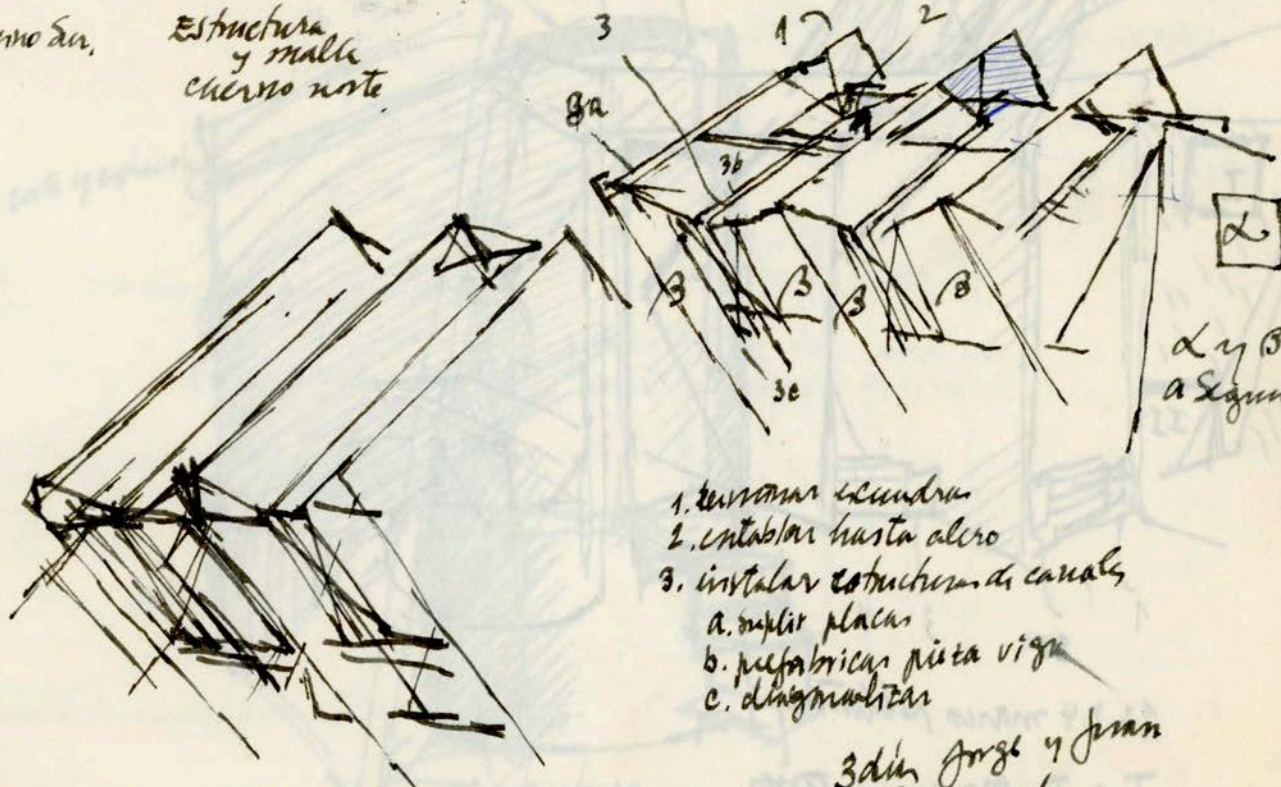 Estructura
y malla
cuerno norte
3
1
2
3a
3b
β
β
β
β
3c
α
α y β
1. tensionar escuadras
2. entablar hasta alero
3. instalar estructuras de canales
a. suplir placas
b. prefabricar pieza viga
c. diagonalizar
3 días Jorge y Juan